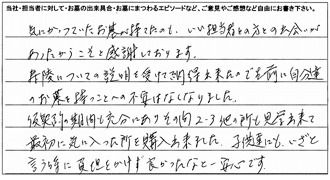 当社・担当者に対して・お墓の出来具合・お墓にまつわるエピソードなど、ご意見やご感想など自由にお書き下さい。
気にかかっていたお墓が持てたのも、いい担当者の方とのお会いが
あったからこそと感謝しております。
についての説明を受けて納得出来たので生前に自分達
のお墓を持つことへの不安はなくなりました。
期間も充分にありその間2~3他の所も見学出来て
最初に気に入った所を購入出来ました。子供達にもいざと
言う時に負担をかけず良かったなと一安心です。